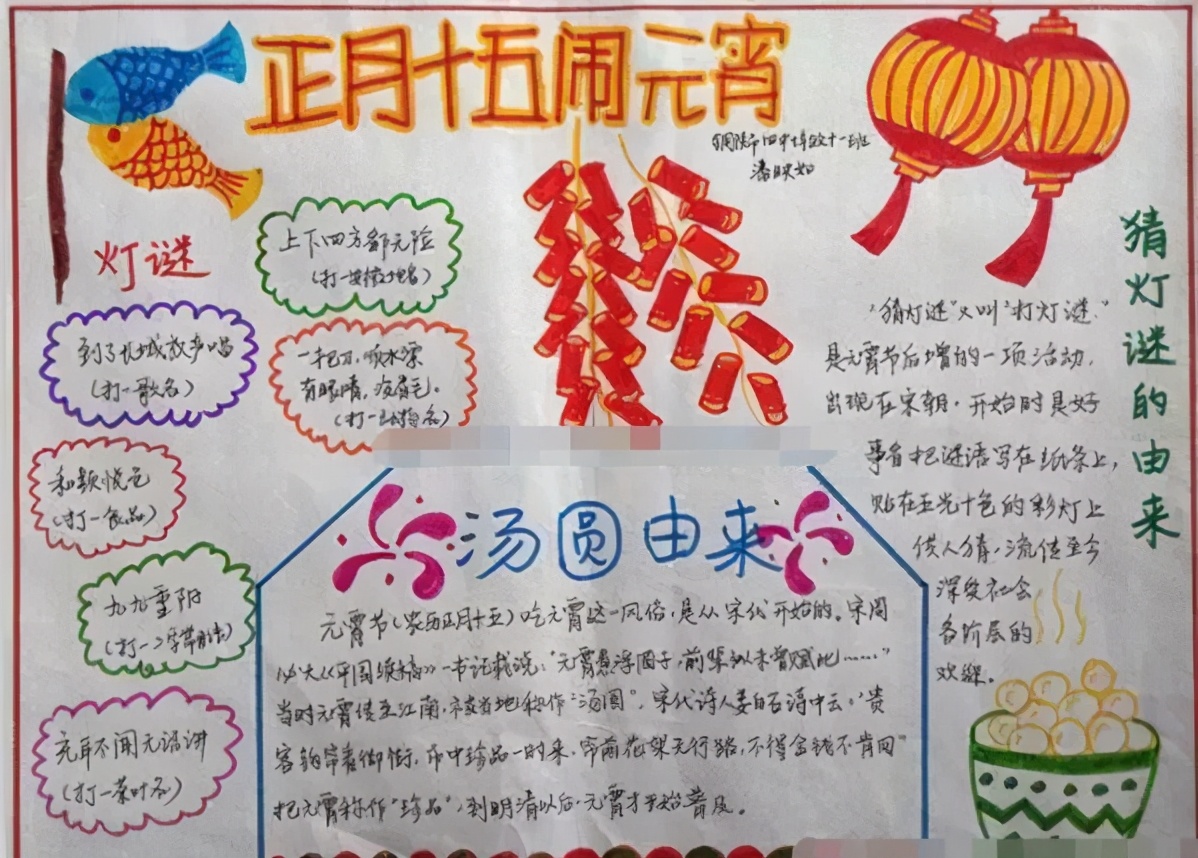 正月十五闹元宵
十一班
潘映如
灯谜
上下四方都无险
(打一安徽地名)
到了长城放声唱
(打一歌名)
一把刀,顺水漂
有眼睛,没眉毛。
(打一动物名)
和颜悦色
(打一食品)
九九重阳
(打一
充耳不闻无话讲
(打一茶叶名)
猜灯谜的由来
“猜灯谜”又叫“打灯谜”
是元宵节后增的一项活动,
出现在宋朝,开始时是好
事者把谜语写在纸条上,
贴在五光十色的彩灯上
供人猜,流传至今
深受社会
各阶层的
欢迎。
汤圆由来
元宵节(农历正月十五)吃元宵这一风俗,是从宋代开始的。宋周
必大《平园续稿》一书记载说:“元宵煮浮圆子,前辈似未曾赋此……”
当时元宵传至江南,被当地称作“汤圆”。宋代诗人姜白石诗中云:“贵
客钩帘看御街,市中珍品一时来,帘前花架无行路,不得金钱不肯回”
把元宵称作“珍品”,到明清以后,元宵才开始普及。